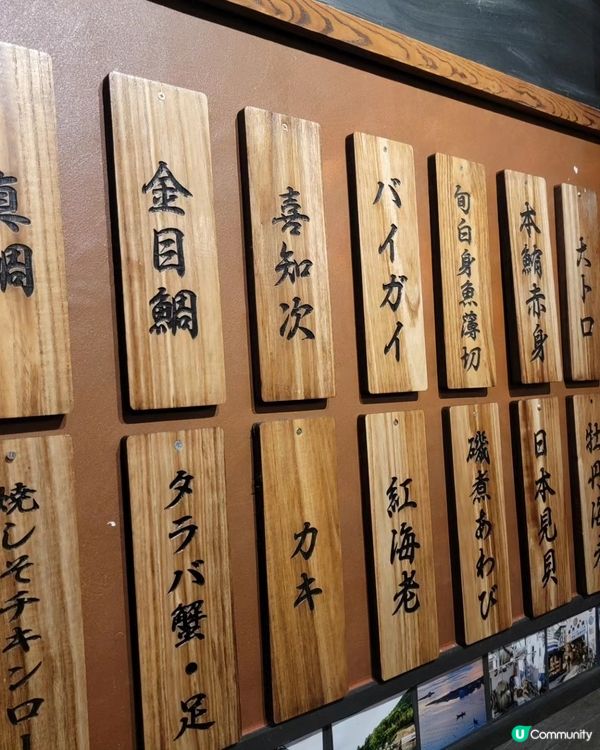 真鯛
金目鯛
喜知次
バイガイ
旬白身魚薄切
本鮪赤身
大トロ
焼しそチキンロー
タラバ蟹・足
カキ
紅海老
磯煮あわび
日本見貝
牡丹海老
U Community